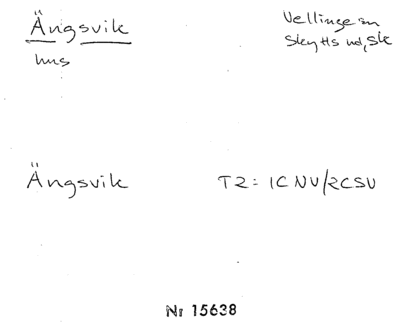 Ängsvik
hus
Vellinge sn
Skytts hd, Sk
Ängsvik
T2 = 1C NV/2C SV
Nr 15638